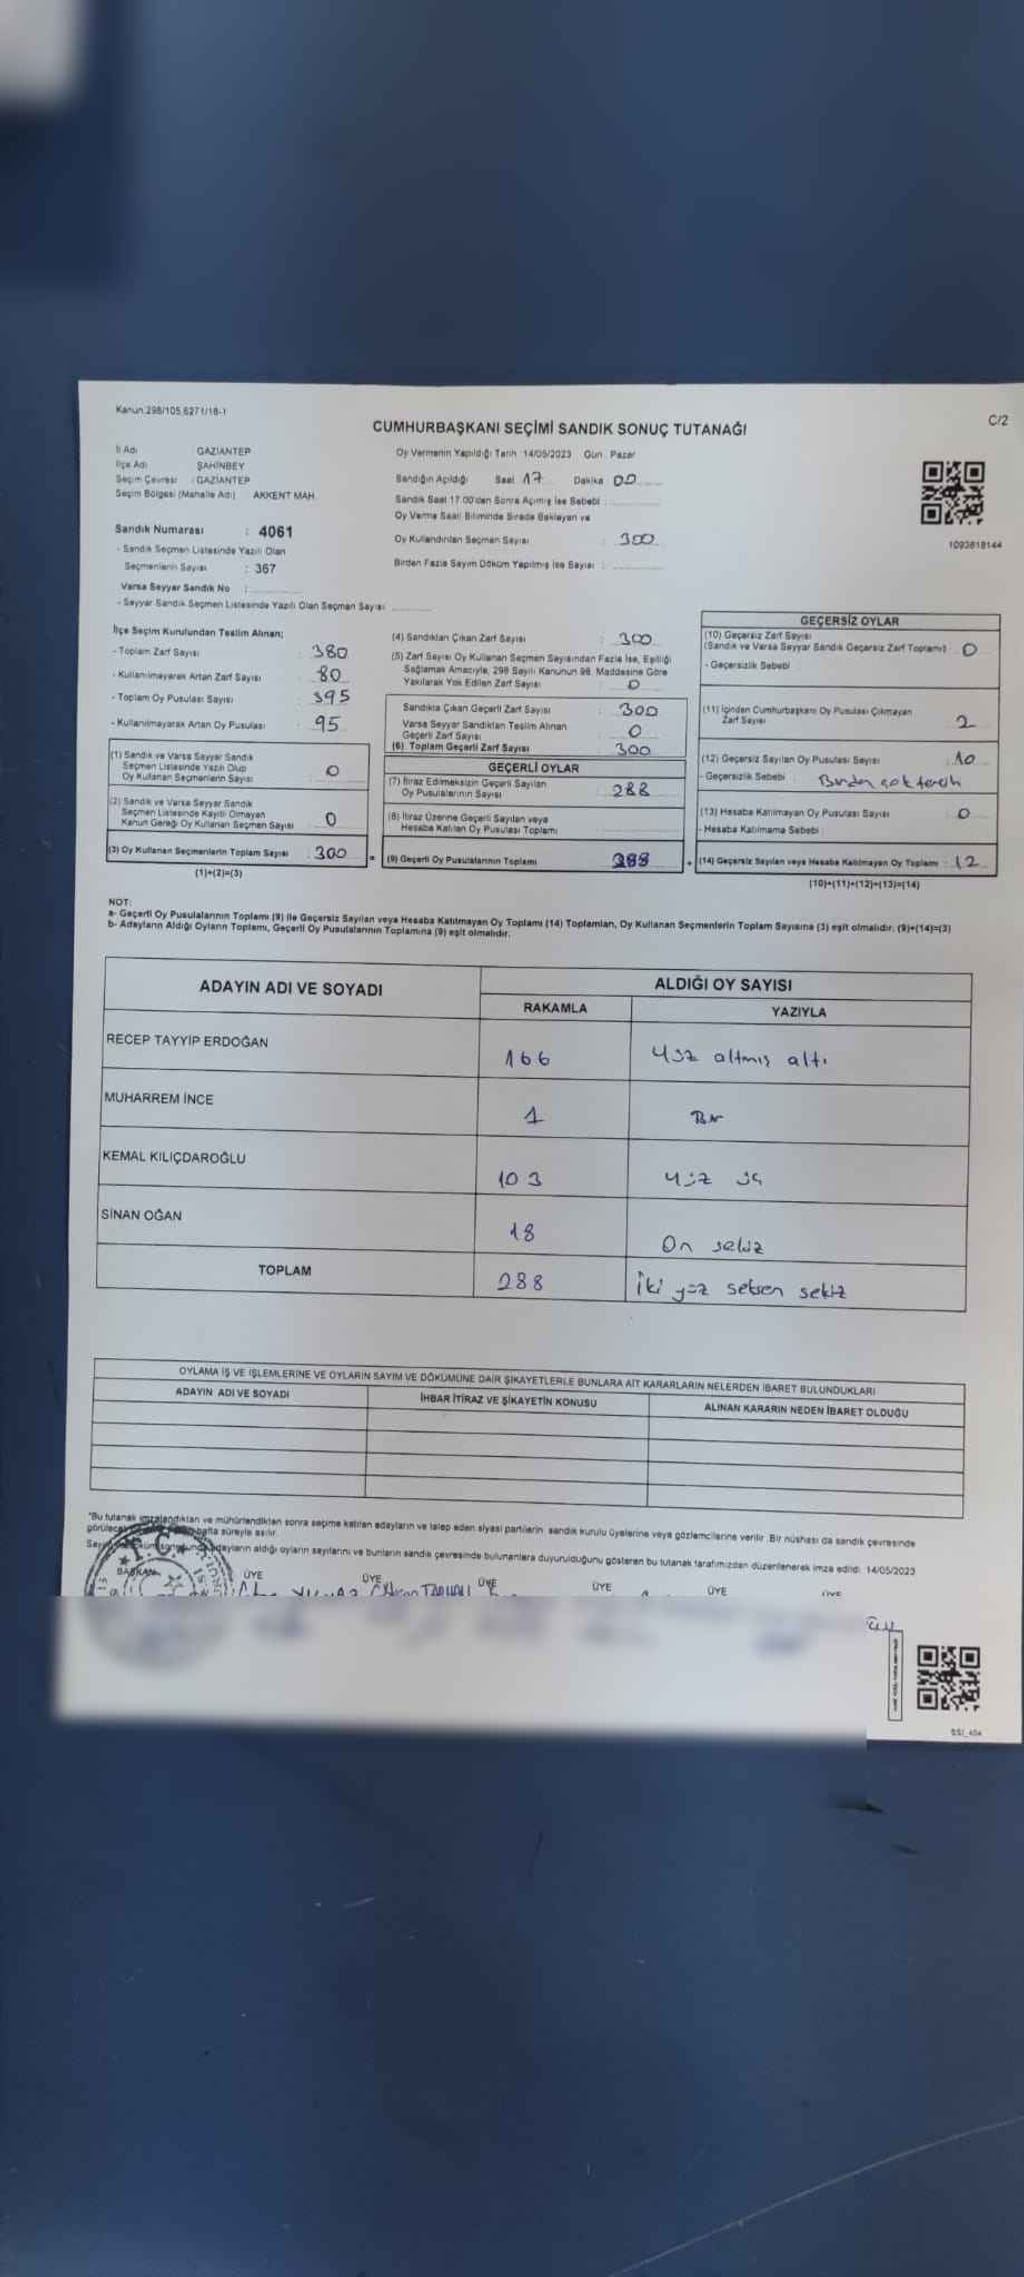 Kanun:298/105,6271/18-1
C/2
CUMHURBAŞKANI SEÇİMİ SANDIK SONUÇ TUTANAĞI
İl Adı GAZİANTEP
İlçe Adı ŞAHİNBEY
Seçim Çevresi : GAZİANTEP
Seçim Bölgesi (Mahalle Adı) AKKENT MAH.
Sandık Numarası : 4061
- Sandık Seçmen Listesinde Yazılı Olan
Seçmenlerin Sayısı : 367
Varsa Seyyar Sandık No :
- Seyyar Sandık Seçmen Listesinde Yazılı Olan Seçmen Sayısı
Oy Vermenin Yapıldığı Tarih :14/05/2023 Gün : Pazar
Sandığın Açıldığı Saat 17 Dakika 00
Sandık Saat 17.00'den Sonra Açılmış İse Sebebi :
Oy Verme Saati Bitiminde Sırada Bekleyen ve
Oy Kullandırılan Seçmen Sayısı : 300
Birden Fazla Sayım Döküm Yapılmış İse Sayısı :
1093618144
İlçe Seçim Kurulundan Teslim Alınan;
- Toplam Zarf Sayısı : 380
- Kullanılmayarak Artan Zarf Sayısı : 80
- Toplam Oy Pusulası Sayısı : 395
- Kullanılmayarak Artan Oy Pusulası : 95
(1) Sandık ve Varsa Seyyar Sandık
Seçmen Listesinde Yazılı Olup
Oy Kullanan Seçmenlerin Sayısı : 0
(2) Sandık ve Varsa Seyyar Sandık
Seçmen Listesinde Kayıtlı Olmayan
Kanun Gereği Oy Kullanan Seçmen Sayısı : 0
(3) Oy Kullanan Seçmenlerin Toplam Sayısı : 300
(1)+(2)=(3)
(4) Sandıktan Çıkan Zarf Sayısı : 300
(5) Zarf Sayısı Oy Kullanan Seçmen Sayısından Fazla İse, Eşitliği
Sağlamak Amacıyla, 298 Sayılı Kanunun 98. Maddesine Göre
Yakılarak Yok Edilen Zarf Sayısı : 0
Sandıkta Çıkan Geçerli Zarf Sayısı : 300
Varsa Seyyar Sandıktan Teslim Alınan
Geçerli Zarf Sayısı : 0
(6) Toplam Geçerli Zarf Sayısı : 300
GEÇERLİ OYLAR
(7) İtiraz Edilmeksizin Geçerli Sayılan
Oy Pusulalarının Sayısı : 288
(8) İtiraz Üzerine Geçerli Sayılan veya
Hesaba Katılan Oy Pusulası Toplamı :
= (9) Geçerli Oy Pusulalarının Toplamı : 288
GEÇERSİZ OYLAR
(10) Geçersiz Zarf Sayısı
(Sandık ve Varsa Seyyar Sandık Geçersiz Zarf Toplamı) : 0
- Geçersizlik Sebebi
(11) İçinden Cumhurbaşkanı Oy Pusulası Çıkmayan
Zarf Sayısı 2
(12) Geçersiz Sayılan Oy Pusulası Sayısı : 10
- Geçersizlik Sebebi : Birden çok tercih
(13) Hesaba Katılmayan Oy Pusulası Sayısı : 0
- Hesaba Katılmama Sebebi :
+ (14) Geçersiz Sayılan veya Hesaba Katılmayan Oy Toplamı : 12
(10)+(11)+(12)+(13)=(14)
NOT:
a- Geçerli Oy Pusulalarının Toplamı (9) ile Geçersiz Sayılan veya Hesaba Katılmayan Oy Toplamı (14) Toplamları, Oy Kullanan Seçmenlerin Toplam Sayısına (3) eşit olmalıdır. (9)+(14)=(3)
b- Adayların Aldığı Oyların Toplamı, Geçerli Oy Pusulalarının Toplamına (9) eşit olmalıdır.
ADAYIN ADI VE SOYADI ALDIĞI OY SAYISI
RAKAMLA YAZIYLA
RECEP TAYYİP ERDOĞAN 166 Yüz altmış altı
MUHARREM İNCE 1 Bir
KEMAL KILIÇDAROĞLU 103 Yüz üç
SİNAN OĞAN 18 On sekiz
TOPLAM 288 İki yüz seksen sekiz
OYLAMA İŞ VE İŞLEMLERİNE VE OYLARIN SAYIM VE DÖKÜMÜNE DAİR ŞİKAYETLERLE BUNLARA AİT KARARLARIN NELERDEN İBARET BULUNDUKLARI
ADAYIN ADI VE SOYADI İHBAR İTİRAZ VE ŞİKAYETİN KONUSU ALINAN KARARIN NEDEN İBARET OLDUĞU
"Bu tutanak imzalandıktan ve mühürlendikten sonra seçime katılan adayların ve talep eden siyasi partilerin sandık kurulu üyelerine veya gözlemcilerine verilir. Bir nüshası da sandık çevresinde
hafta süreyle asılır.
adayların aldığı oyların sayılarını ve bunların sandık çevresinde bulunanlara duyurulduğunu gösteren bu tutanak tarafımızdan düzenlenerek imza edildi. 14/05/2023
T.C.
BAŞKAN ÜYE ÜYE ÜYE ÜYE ÜYE ÜYE